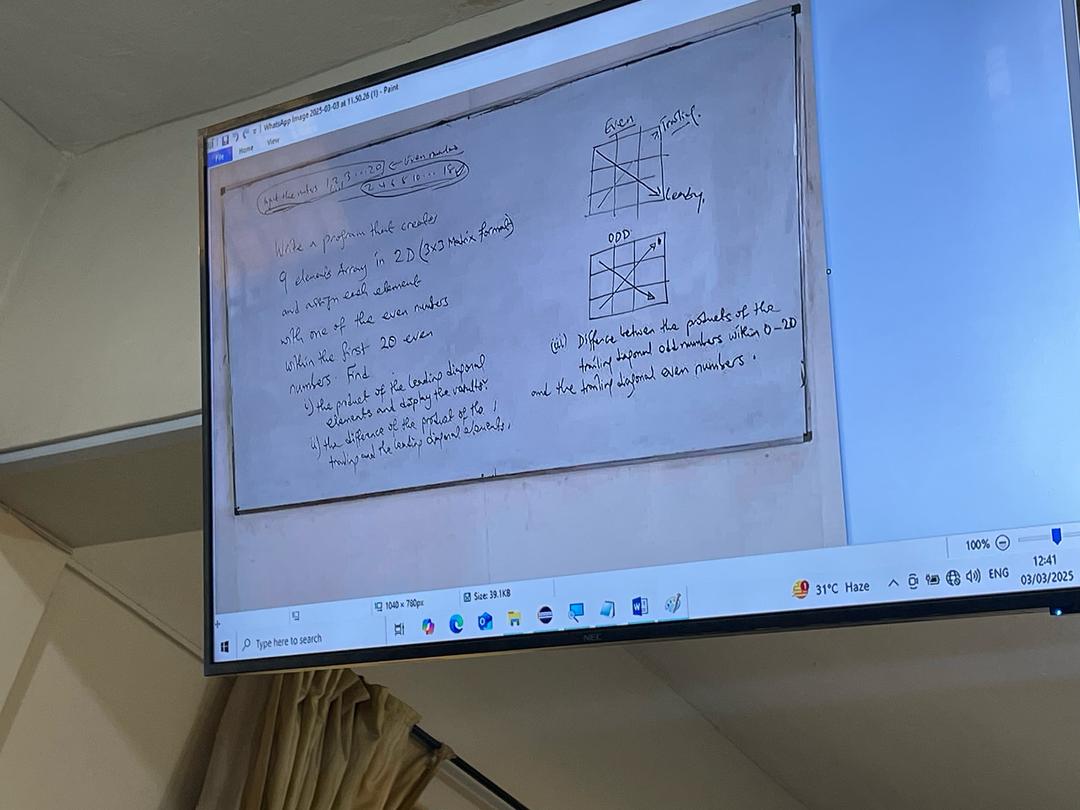 WhatsApp Image 2025-03-03 at 11.50.26 (1) - Paint
File Home View
Input the 1, 2, 3 ... 20 ← Even numbers
2 4 6 8 10 ... 18
Write a program that creates
9 elements Array in 2D (3x3 Matrix format)
and assign each element
with one of the even numbers
within the first 20 even
numbers. Find
i) the product of the leading diagonal
elements and display the
ii) the difference of the product of the
trailing and the leading diagonal elements.
Even
Trailing.
Leading.
ODD
(iii) Differce between the products of the
trailing diagonal odd numbers within 0-20
and the trailing diagonal even numbers.
1040 × 780px
Size: 39.1KB
100%
Type here to search
31°C Haze
ENG
12:41
03/03/2025
NEC